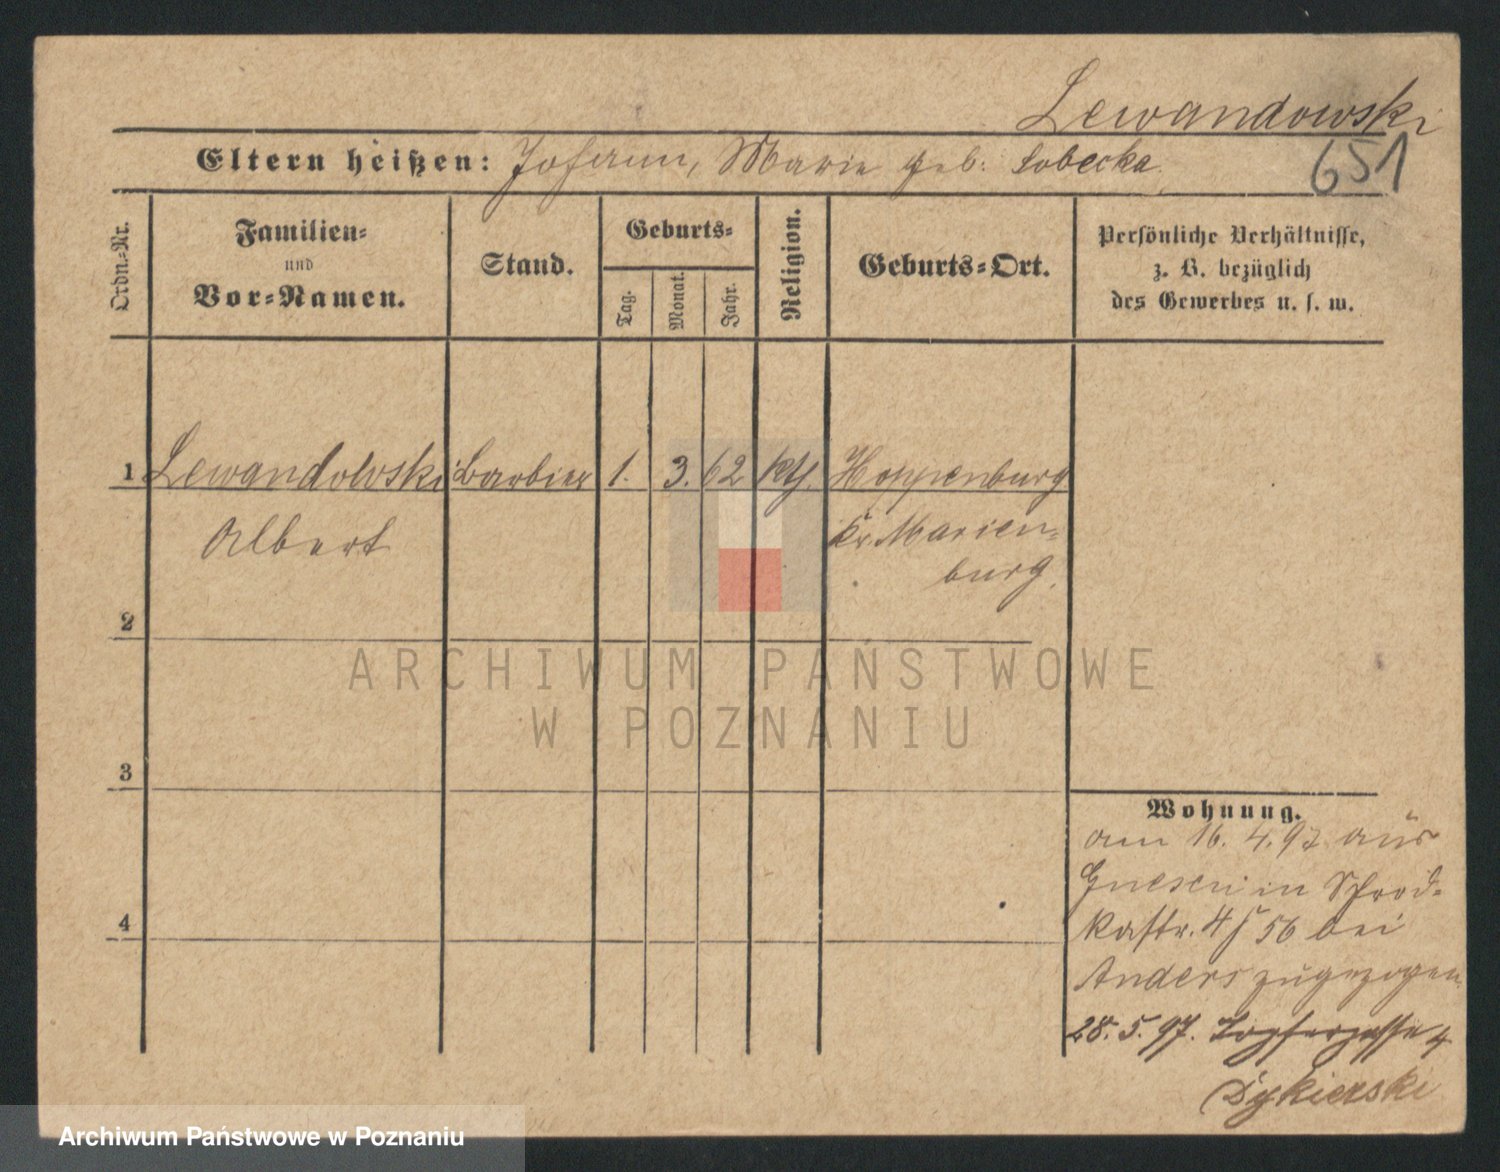 Lewandowski
651
Eltern heißen: Johann, Marie geb: Sobecka.
Ordn.-Nr.
Familien-
und
Vor-Namen.
Stand.
Geburts-
Tag.
Monat.
Jahr.
Religion.
Geburts-Ort.
Persönliche Verhältnisse,
z. B. bezüglich
des Gewerbes u. s. w.
1 Lewandowski Barbier 1. 3. 62 kth. Hoppenburg
Albert
Kr. Marien-
burg.
2
ARCHIWUM PAŃSTWOWE
W POZNANIU
3
4
Wohnung.
am 16. 4. 97 aus
Gnesen in
56 bei
Anders zugezogen
28. 5. 97. Töpfergasse 4
Dykierski
Archiwum Państwowe w Poznaniu